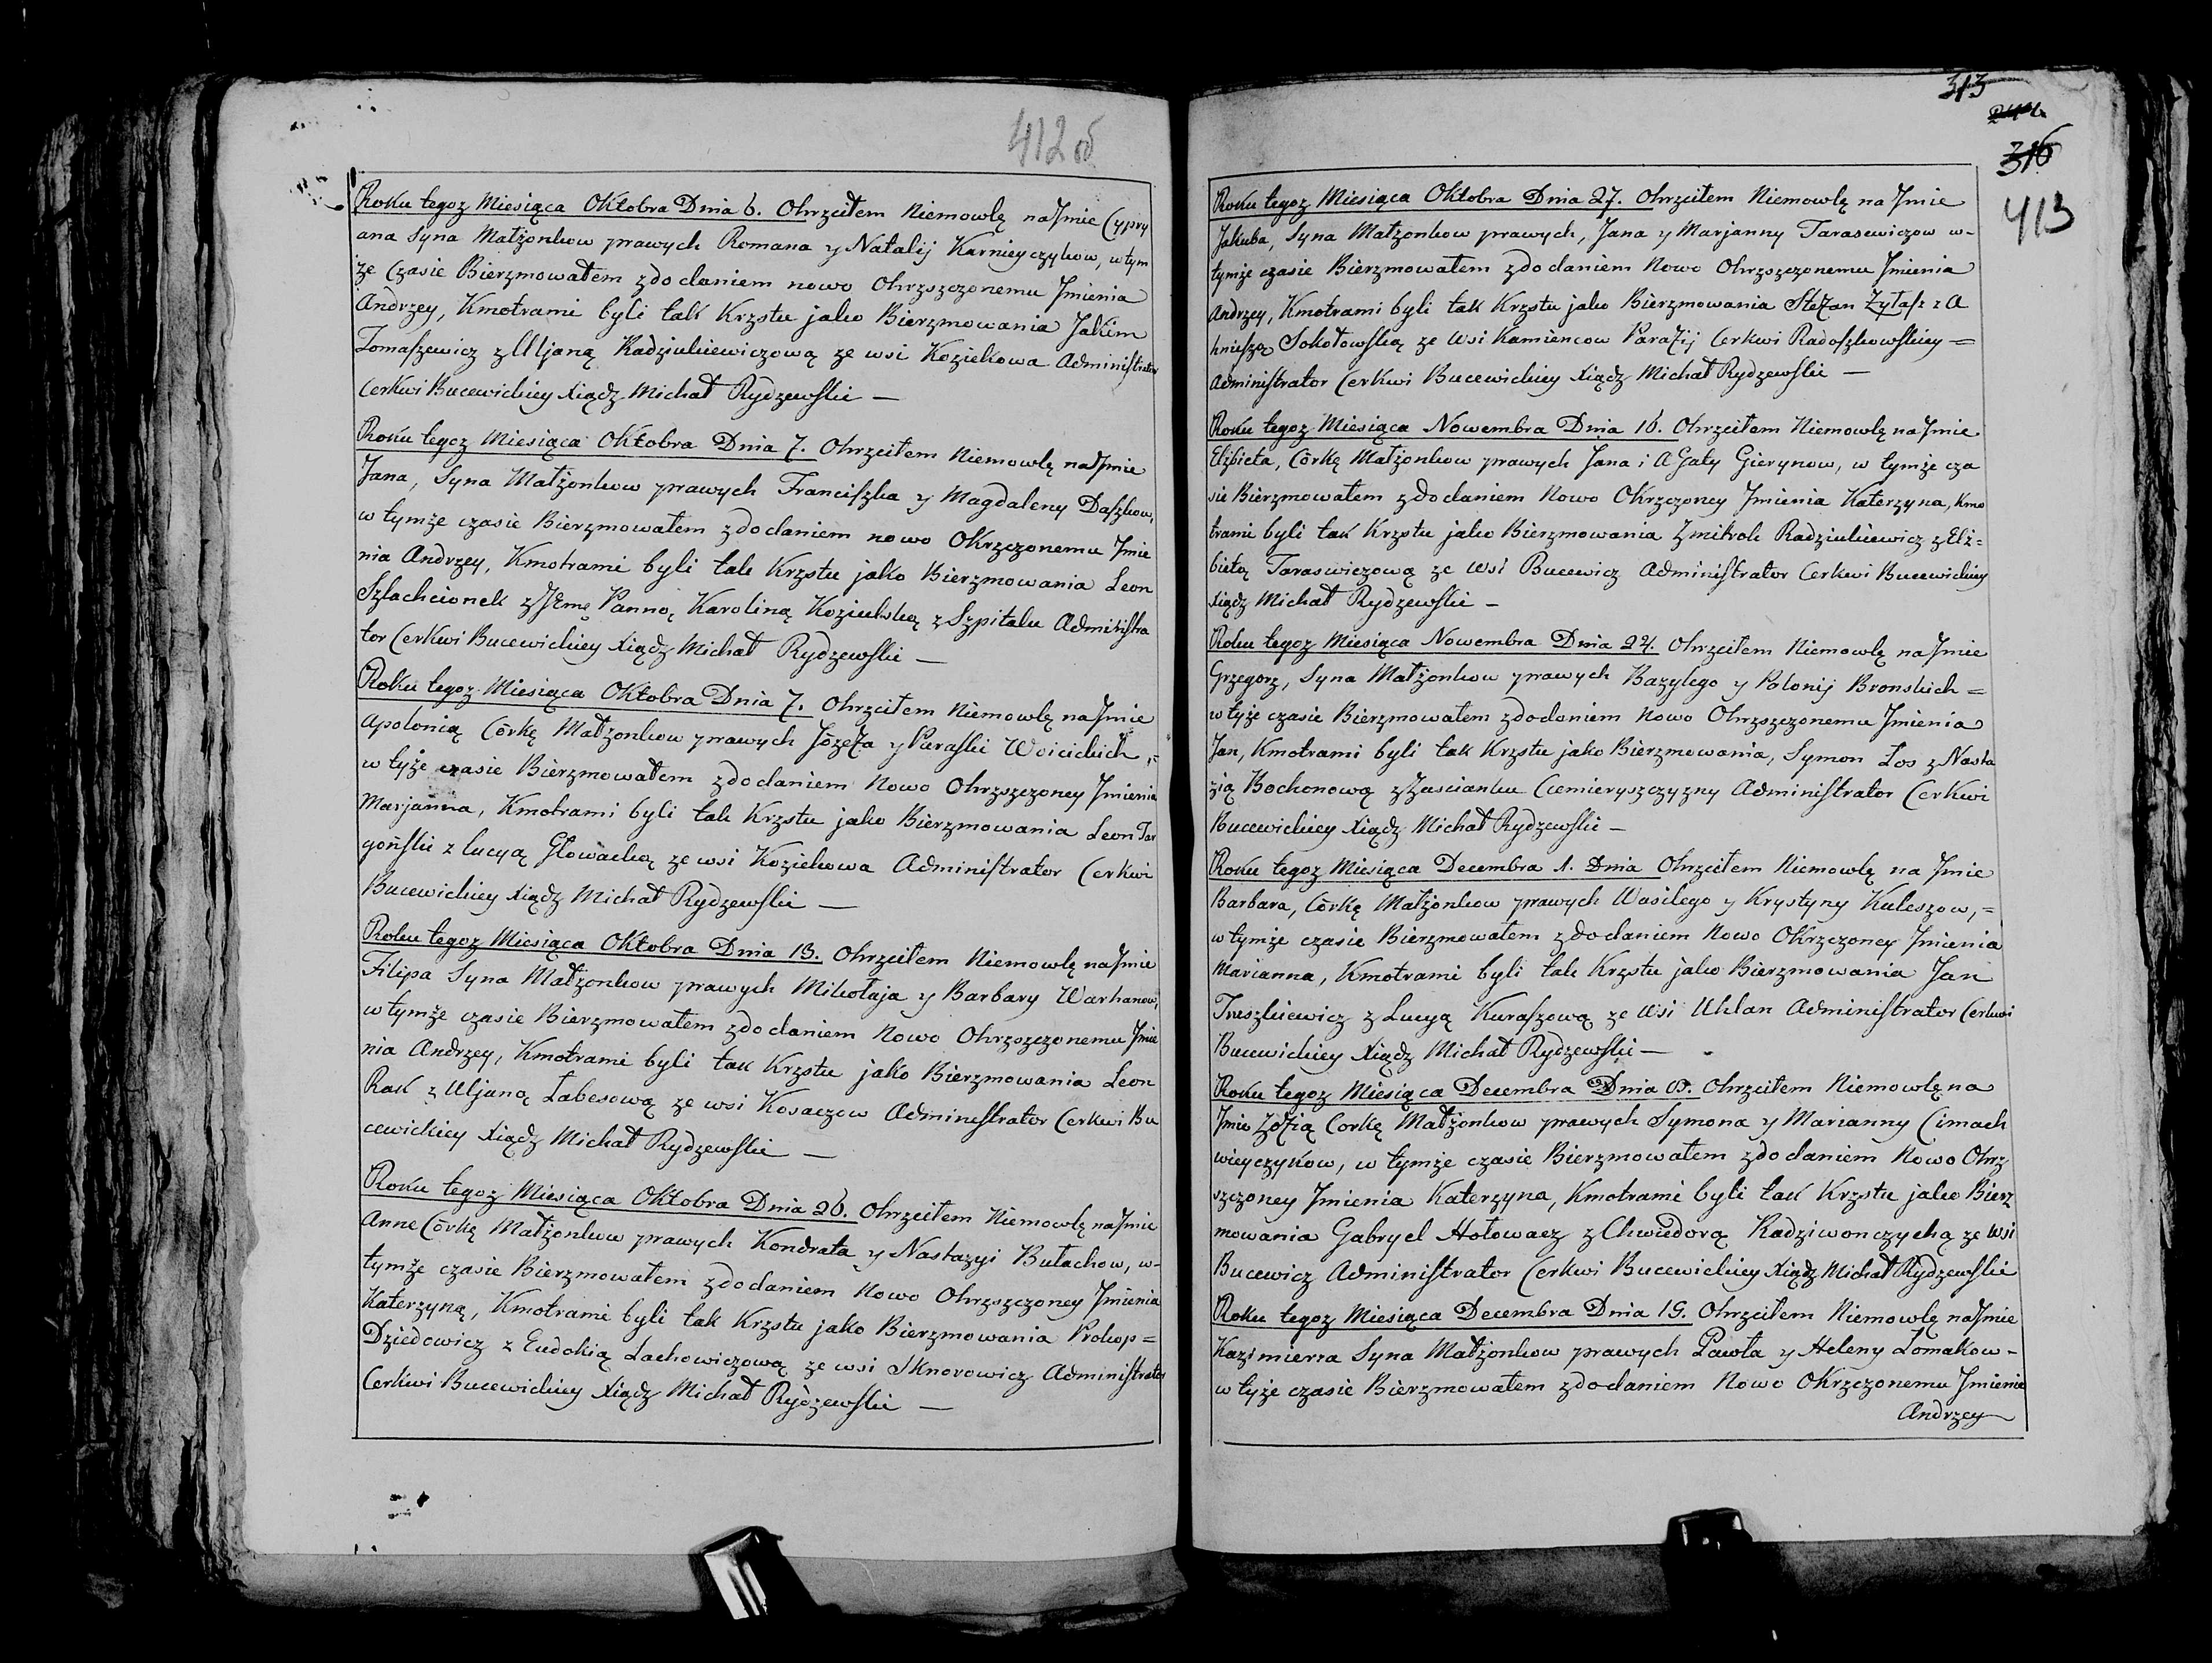 412 об
Roku tegoz Miesiąca Oktobra Dnia 6. Ohrzciłem Niemowlę na Jmie Cypry
ana syna Małżonkow prawych Romana y Natalij Karnieyczykow, w tym
że Czasie Bierzmowałem z dodaniem nowo Ohrzszczonemu Jmienia
Andrzey, Kmotrami byli tak Krzstu jako Bierzmowania Jakim
Tomaszewicz z Uljaną Radziukiewiczową ze wsi Koziekowa Administrator
Cerkwi Bucewickiey Xiądz Michał Rydzewski —
Roku tegoz Miesiąca Oktobra Dnia 7. Ohrzciłem Niemowlę na Jmie
Jana, Syna Małżonkow prawych Franciszka y Magdaleny Daszkow,
w tymże czasie Bierzmowałem z dodaniem nowo Okrzczonemu Jmie
nia Andrzey, Kmotrami byli tak Krzstu jako Bierzmowania Leon
Szlachcionek z JEmę Panną Karoliną Koziulską z Szpitalu Administra
tor Cerkwi Bucewickiey Xiądz Michał Rydzewski —
Roku tegoz Miesiąca Oktobra Dnia 7. Ohrzciłem Niemowlę na Jmie
Apolonią Córkę Małżonkow prawych Józefa y Paraski Woicickich,=
w tyże czasie Bierzmowałem z dodaniem Nowo Ohrzszczoney Jmienia
Marjanna, Kmotrami byli tak Krzstu jako Bierzmowania Leon Tar
goński z Lucyą Głowacką ze wsi Koziekowa Administrator Cerkwi
Bucewickiey Xiądz Michał Rydzewski —
Roku tegoz Miesiąca Oktobra Dnia 13. Ohrzciłem Niemowlę na Jmie
Filipa Syna Małżonkow prawych Mikołaja y Barbary Warhanow,
w tymże czasie Bierzmowałem z dodaniem Nowo Ohrzszczonemu Jmie
nia Andrzey, Kmotrami byli tak Krzstu jako Bierzmowania Leon
Rak z Uljaną Łabesową ze wsi Kosaczow Administrator Cerkwi Bu
cewickiey Xiądz Michał Rydzewski —
Roku tegoz Miesiąca Oktobra Dnia 26. Ohrzciłem Niemowlę na Jmie
Anne Córkę Małżonkow prawych Kondrata y Nastazyi Bułachow, w-
tymże czasie Bierzmowałem z dodaniem Nowo Ohrzszczoney Jmienia
Katerzyną, Kmotrami byli tak Krzstu jako Bierzmowania Prokop=
Dziedowicz z Eudokią Lachowiczową ze wsi Sknorowicz Administrator
Cerkwi Bucewickiey Xiądz Michał Rydzewski —
313
316
413
Roku tegoz Miesiąca Oktobra Dnia 27. Ohrzciłem Niemowlę na Jmie
Jakuba, Syna Małżonkow prawych, Jana y Marjanny Tarasewiczow w-
tymże czasie Bierzmowałem z dodaniem Nowo Ohrzszczonemu Jmienia
Andrzey, Kmotrami byli tak Krzstu jako Bierzmowania Stefan Żyłasz z A
hnieszą Sokołowską ze wsi Kamiencow Parafij Cerkwi Radoszkowskiey =
Administrator Cerkwi Bucewickiey Xiądz Michał Rydzewski —
Roku tegoz Miesiąca Nowembra Dnia 16. Ohrzciłem Niemowlę na Jmie
Elżbieta, Córkę Małżonkow prawych Jana i Agaty Gierynow, w tymże cza
sie Bierzmowałem z dodaniem Nowo Okrzczoney Jmienia Katerzyna, Kmo
trami byli tak Krzstu jako Bierzmowania Zmitrok Radziukiewicz z Elż=
bietą Taraswiczową ze wsi Bucewicz Administrator Cerkwi Bucewickiey
Xiądz Michał Rydzewski —
Roku tegoz Miesiąca Nowembra Dnia 24. Ohrzciłem Niemowlę na Jmie
Grzegorz, Syna Małżonkow prawych Bazylego y Polonij Bronskich =
w tyże czasie Bierzmowałem z dodaniem Nowo Ohrzszczonemu Jmienia
Jan, Kmotrami byli tak Krzstu jako Bierzmowania, Symon Łos z Nasta
zią Bochonową z Zascianku Ciemieryszczyzny Administrator Cerkwi
Bucewickiey Xiądz Michał Rydzewski —
Roku tegoz Miesiąca Decembra 1. Dnia Ohrzciłem Niemowlę na Jmie
Barbara, Córkę Małżonkow prawych Wasilego y Krystyny Kuleszow,=
w tymże czasie Bierzmowałem z dodaniem Nowo Okrzczoney Jmienia
Marianna, Kmotrami byli tak Krzstu jako Bierzmowania Jan
Juszkiewicz z Lucyą Kuraszową ze wsi Uhlan Administrator Cerkwi
Bucewickiey Xiądz Michał Rydzewski —
Roku tegoz Miesiąca Decembra Dnia Ohrzciłem Niemowlę na
Jmie Zofią Corkę Małżonkow prawych Symona y Marianny Cimach
wieyczykow, w tymże czasie Bierzmowałem z dodaniem Nowo Ohrz
szczoney Jmienia Katerzyna, Kmotrami byli tak Krzstu jako Bierz
mowania Gabryel Hołowacz z Chwiedorą Radziwonczychą ze wsi
Bucewicz Administrator Cerkwi Bucewickiey Xiądz Michał Rydzewski
Roku tegoz Miesiąca Decembra Dnia 19. Ohrzciłem Niemowlę na Jmie
Kazimierza Syna Małżonkow prawych Pawła y Heleny Łomakow -
w tyże czasie Bierzmowałem z dodaniem Nowo Okrzczonemu Jmienia
Andrzey